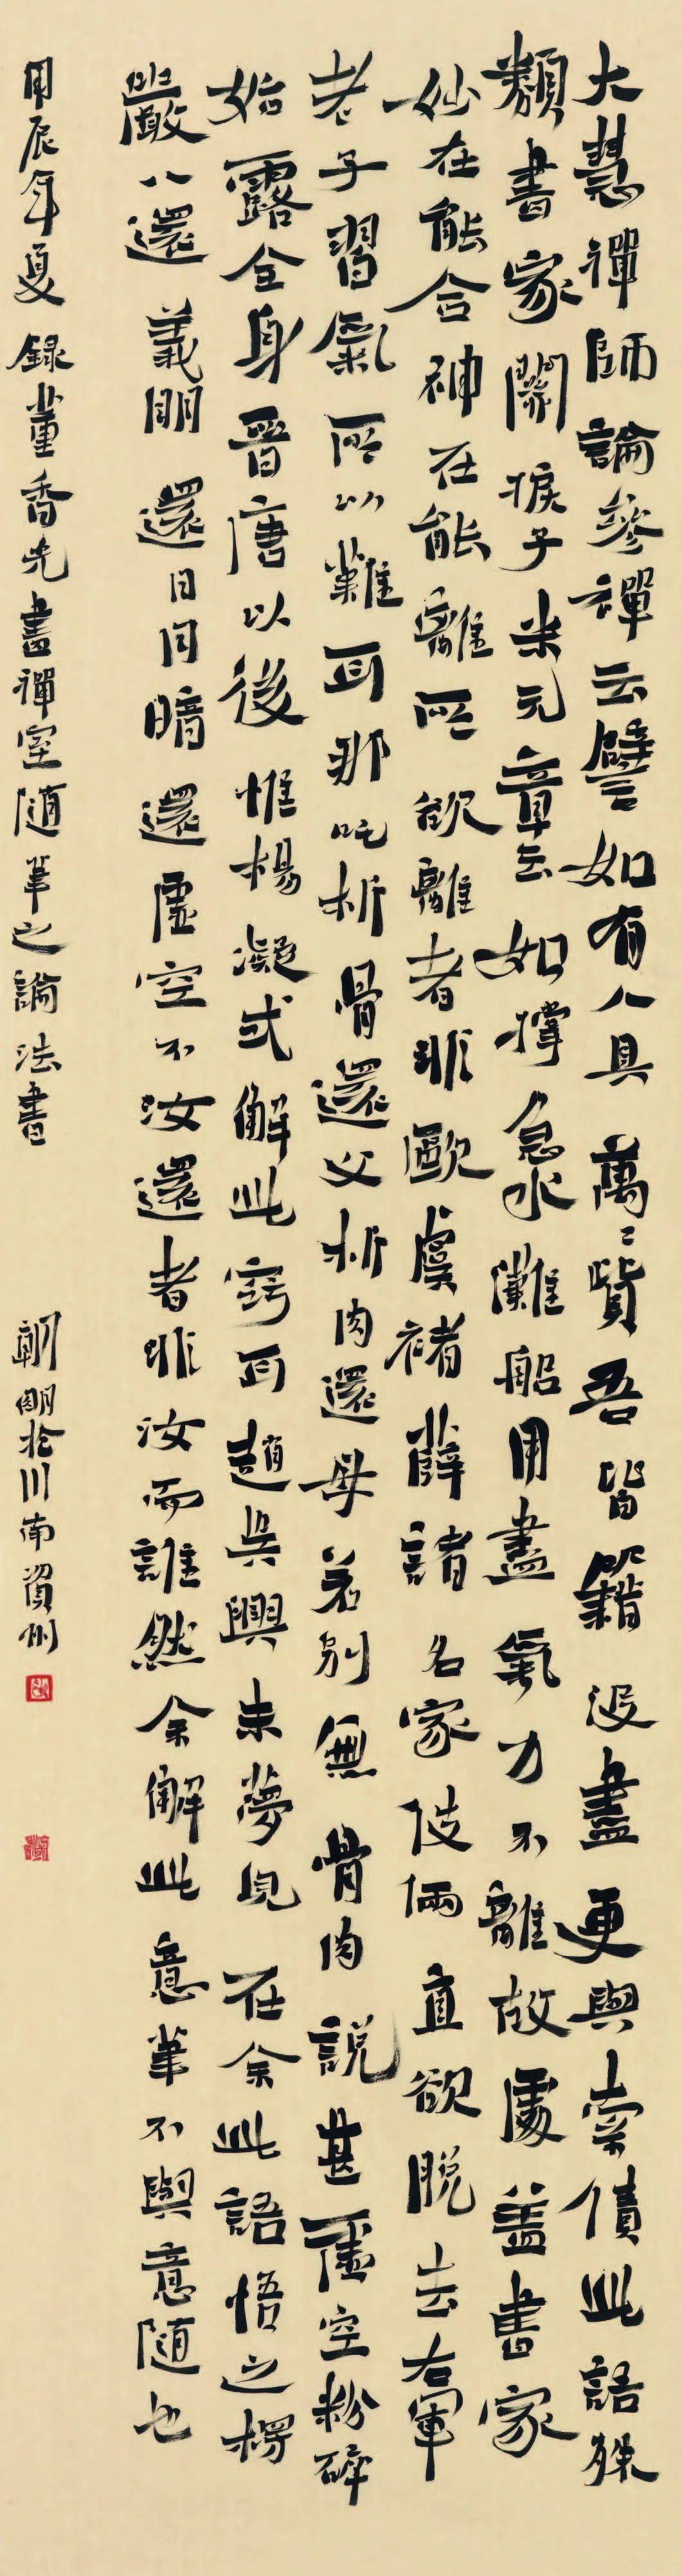 大慧禪師論參禪云譬如有人具萬〻貲吾皆籍沒盡更與索債此語殊
類書家關捩子米元章云如撐急水灘船用盡氣力不離故處蓋書家
妙在能合神在能離所欲離者非歐虞褚薛諸名家伎倆直欲脫去右軍
老子習氣所以難耳那吒析骨還父析肉還母若別無骨肉說甚虛空粉碎
始露全身晉唐以後惟楊凝式解此竅耳趙吳興未夢見在余此語悟之楞
嚴八還義明還日月暗還虛空不汝還者非汝而誰然余解此意筆不與意隨也
甲辰年夏錄董香光畫禪室随筆之論法書
朝明於川南資州